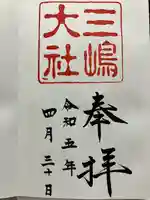 奉拝
三嶋
大社
令和五年
四月三十日